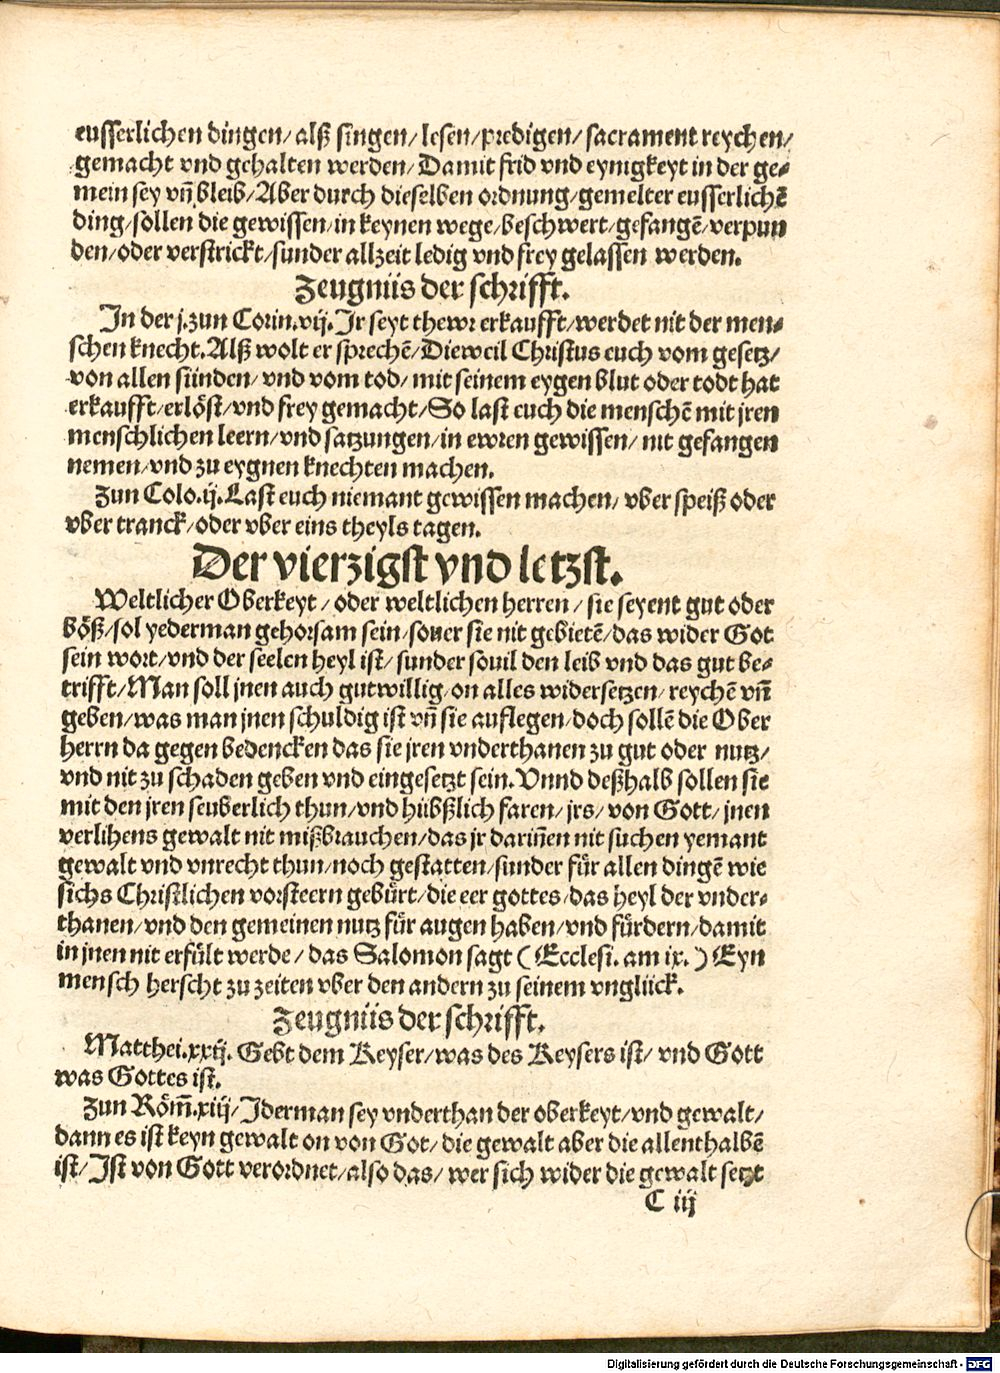 eusserlichen dingen/ alß singen/ lesen/ predigen/ sacrament reychen/
gemacht vnd gehalten werden/ Damit frid vnd eynigkeyt in der ge⸗
mein sey vñ bleib/ Aber durch dieselben ordnung/ gemelter eusserlichē
ding/ sollen die gewissen/ in keynen wege/ beschwert/ gefangē/ verpun
den/ oder verstrickt/ sunder allzeit ledig vnd frey gelassen werden.
Zeugnüs der schrifft.
In der j. zun Corin. vij. Ir seyt thewr erkaufft/ werdet nit der men⸗
schen knecht. Alß wolt er sprechē/ Dieweil Christus euch vom gesetz/
von allen sünden/ vnd vom tod/ mit seinem eygen blut oder todt hat
erkaufft/ erlöst/ vnd frey gemacht/ So last euch die menschē mit jren
menschlichen leern/ vnd satzungen/ in ewren gewissen/ nit gefangen
nemen/ vnd zu eygnen knechten machen.
Zun Colo. ij. Last euch niemant gewissen machen/ vber speiß oder
vber tranck/ oder vber eins theyls tagen.
Der vierzigst vnd letzst.
Weltlicher Oberkeyt/ oder weltlichen herren/ sie seyent gut oder
böß/ sol yederman gehorsam sein/ souer sie nit gebietē/ das wider Got
sein wort/ vnd der seelen heyl ist/ sunder souil den leib vnd das gut be⸗
trifft/ Man soll jnen auch gutwillig/ on alles widersetzen/ reychē vñ
geben/ was man jnen schuldig ist vñ sie auflegen/ doch sollē die Ober
herrn da gegen bedencken das sie jren vnderthanen zu gut oder nutz/
vnd nit zu schaden geben vnd eingesetzt sein. Vnnd deßhalb sollen sie
mit den jren seuberlich thun/ vnd hübßlich faren/ jrs/ von Gott/ jnen
verlihens gewalt nit mißbrauchen/ das jr dariñen nit suchen yemant
gewalt vnd vnrecht thun/ noch gestatten/ sunder für allen dingē wie
sichs Christlichen vorsteern gebürt/ die eer gottes/ das heyl der vnder⸗
thanen/ vnd den gemeinen nutz für augen haben/ vnd fürdern/ damit
in jnen nit erfült werde/ das Salomon sagt (Ecclesi. am ix.) Eyn
mensch herscht zu zeiten vber den andern zu seinem vnglück.
Zeugnüs der schrifft.
Matthei. xxij. Gebt dem Keyser/ was des Keysers ist/ vnd Gott
was Gottes ist.
Zun Röm̄. xiij/ Iderman sey vnderthan der oberkeyt/ vnd gewalt/
dann es ist keyn gewalt on von Got/ die gewalt aber die allenthalbē
ist/ Ist von Gott verordnet/ also das/ wer sich wider die gewalt setzt
C iij
Digitalisierung gefördert durch die Deutsche Forschungsgemeinschaft - DFG